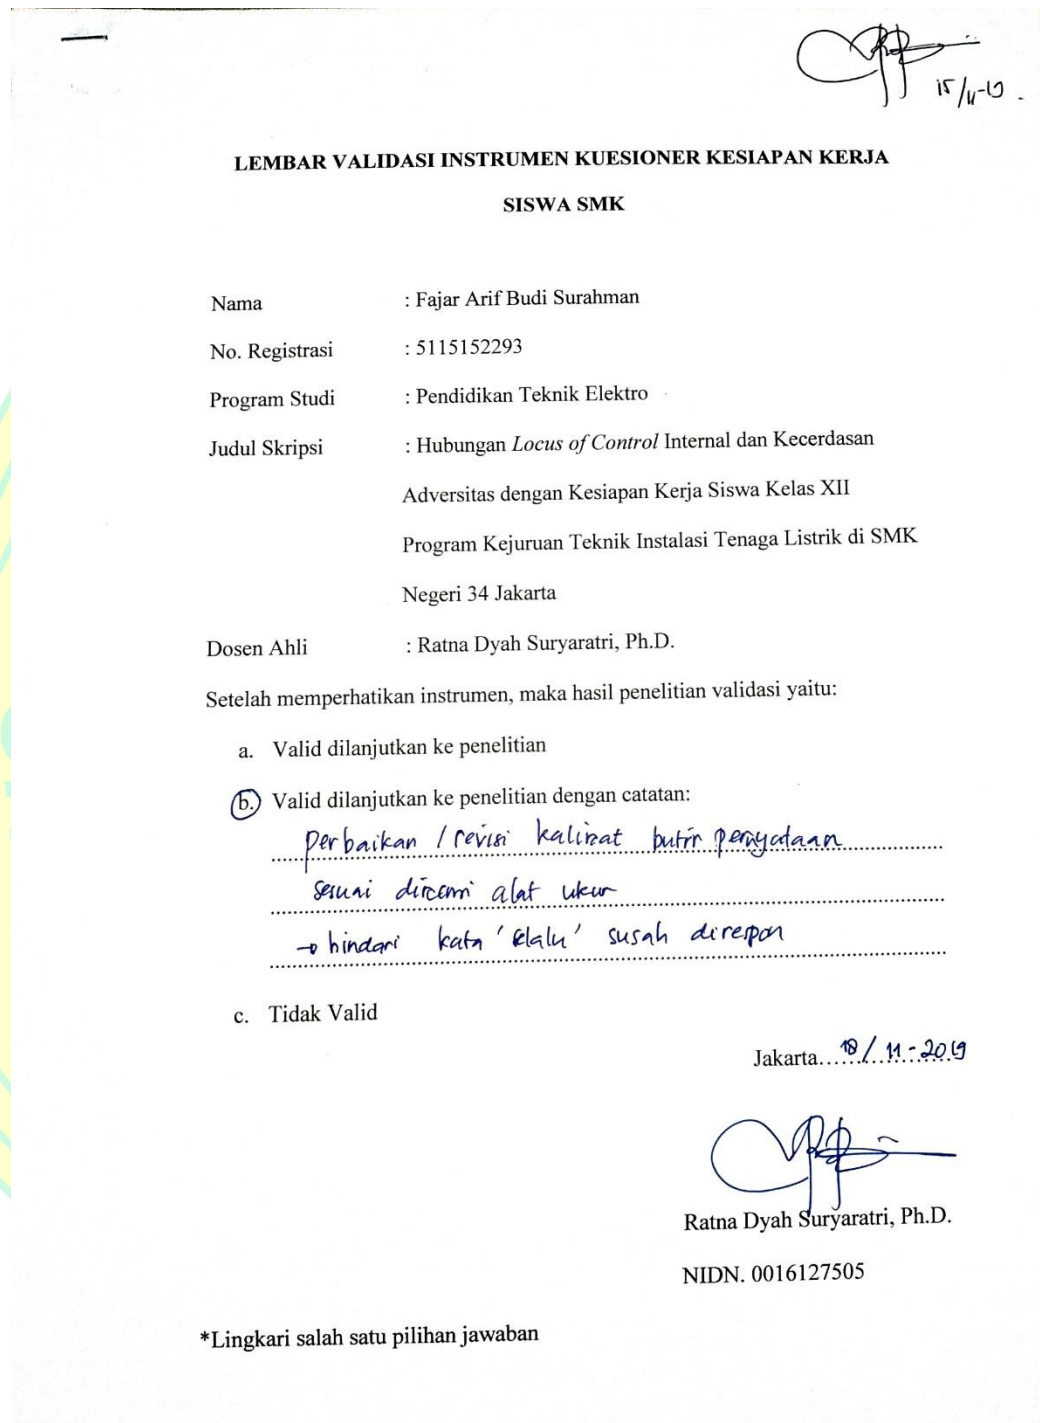 15/11-19.
LEMBAR VALIDASI INSTRUMEN KUESIONER KESIAPAN KERJA
SISWA SMK
Nama : Fajar Arif Budi Surahman
No. Registrasi : 5115152293
Program Studi : Pendidikan Teknik Elektro
Judul Skripsi : Hubungan Locus of Control Internal dan Kecerdasan
Adversitas dengan Kesiapan Kerja Siswa Kelas XII
Program Kejuruan Teknik Instalasi Tenaga Listrik di SMK
Negeri 34 Jakarta
Dosen Ahli : Ratna Dyah Suryaratri, Ph.D.
Setelah memperhatikan instrumen, maka hasil penelitian validasi yaitu:
a. Valid dilanjutkan ke penelitian
b. Valid dilanjutkan ke penelitian dengan catatan:
perbaikan / revisi kalimat butir pernyataan
sesuai alat ukur
→ hindari kata 'selalu' susah direspon
c. Tidak Valid
Jakarta...18/11-2019
Ratna Dyah Suryaratri, Ph.D.
NIDN. 0016127505
*Lingkari salah satu pilihan jawaban